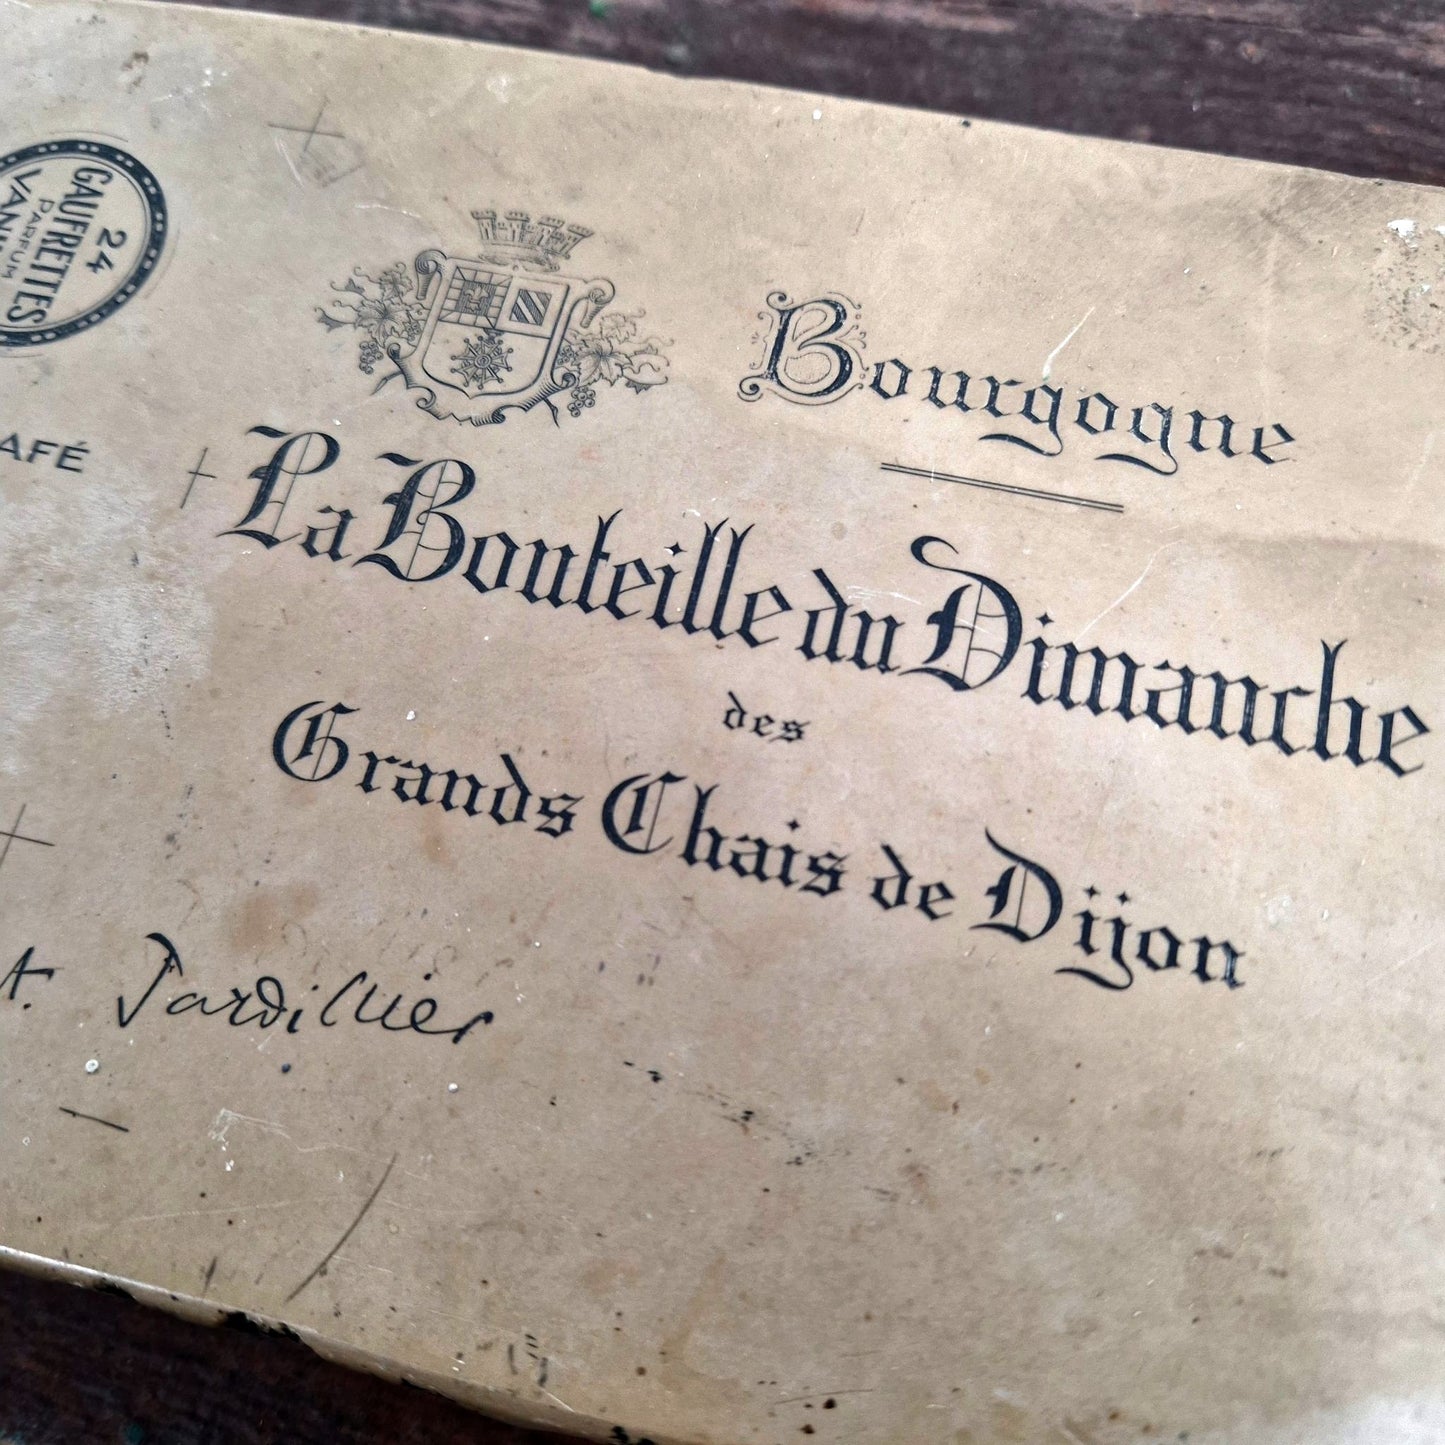 24
GAUFRETTES
PARFUM
Bourgogne
La Bouteille du Dimanche
des
Grands Chais de Dijon
AFÉ
A. Jardillier